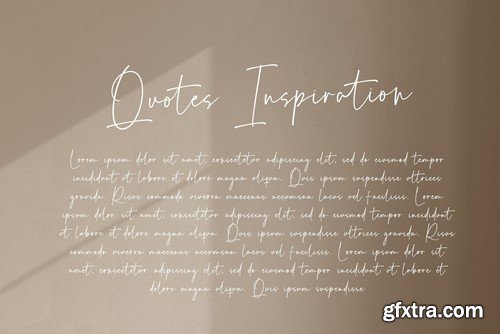 Quotes Inspiration
Lorem ipsum dolor sit amet, consectetur adipiscing elit, sed do eiusmod tempor
incididunt ut labore et dolore magna aliqua. Quis ipsum suspendisse ultrices
gravida. Risus commodo viverra maecenas accumsan lacus vel facilisis. Lorem
ipsum dolor sit amet, consectetur adipiscing elit, sed do eiusmod tempor incididunt
ut labore et dolore magna aliqua. Quis ipsum suspendisse ultrices gravida. Risus
commodo viverra maecenas accumsan lacus vel facilisis. Lorem ipsum dolor sit
amet, consectetur adipiscing elit, sed do eiusmod tempor incididunt ut labore et
dolore magna aliqua. Quis ipsum suspendisse
gfxtra.com